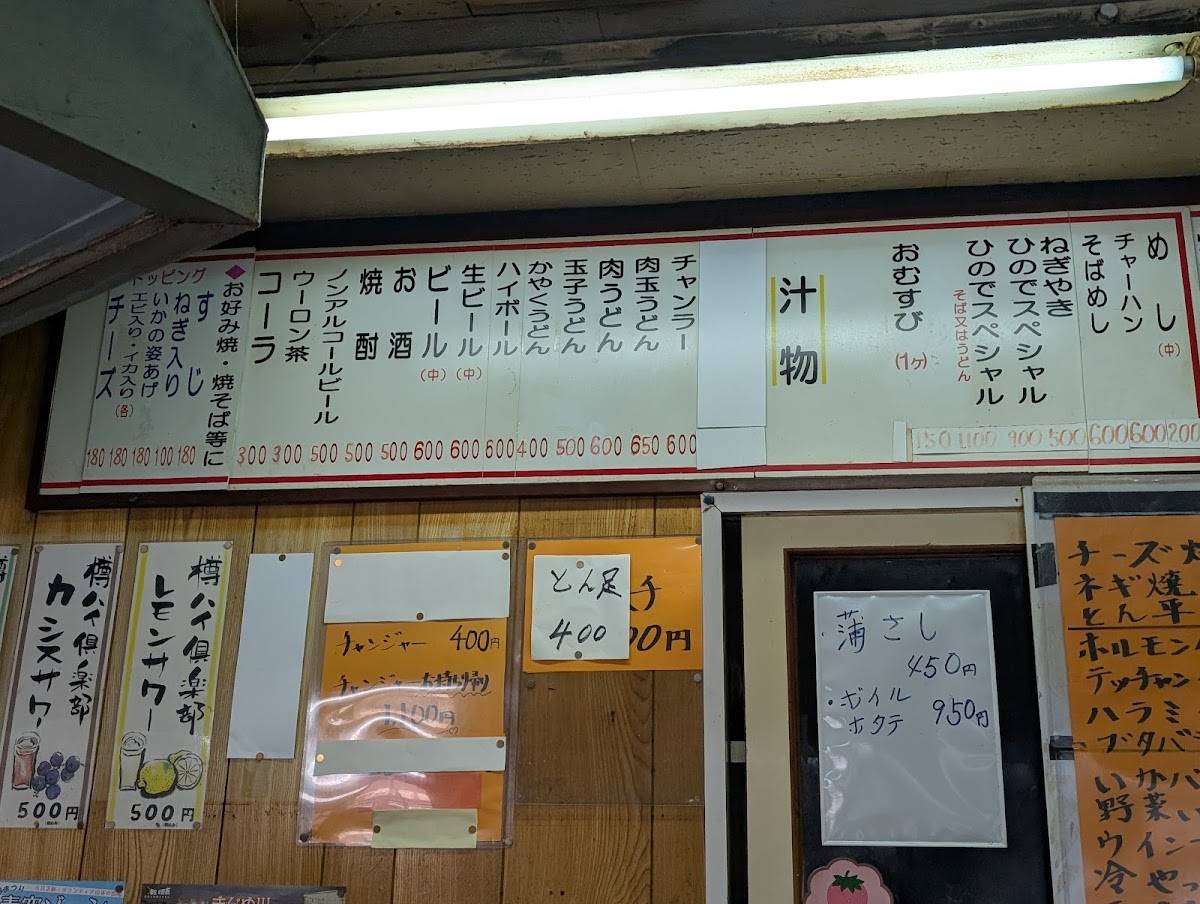 めし (中) 200
チャーハン 600
そばめし 600
ねぎやき 500
ひのでスペシャル 900
ひのでスペシャル 1,100
そば又はうどん
おむすび (1ヶ) 150
汁物
チャンラー 600
肉玉うどん 650
肉うどん 600
玉子うどん 500
かやくうどん 400
ハイボール 600
生ビール (中) 600
ビール (中) 600
お酒 500
焼酎 500
ノンアルコールビール 500
ウーロン茶 300
コーラ 300
◆お好み焼・焼そば等に
トッピング
すじ 180
ねぎ入り 100
いかの姿あげ 180
エビ入り・イカ入り (各) 180
チーズ 180
樽ハイ倶楽部
カシスサワー
500円
樽ハイ倶楽部
レモンサワー
500円
チャンジャー 400円
チャンジャー お持り帰り
1,100円
とん足
400
チ
00円
・蒲さし
450円
・ボイル
ホタテ 950円
チーズ
ネギ焼
とん平
ホルモン
テッチャン
ハラミ
ブタバラ
いか
野菜い
ウインナー
冷やっ